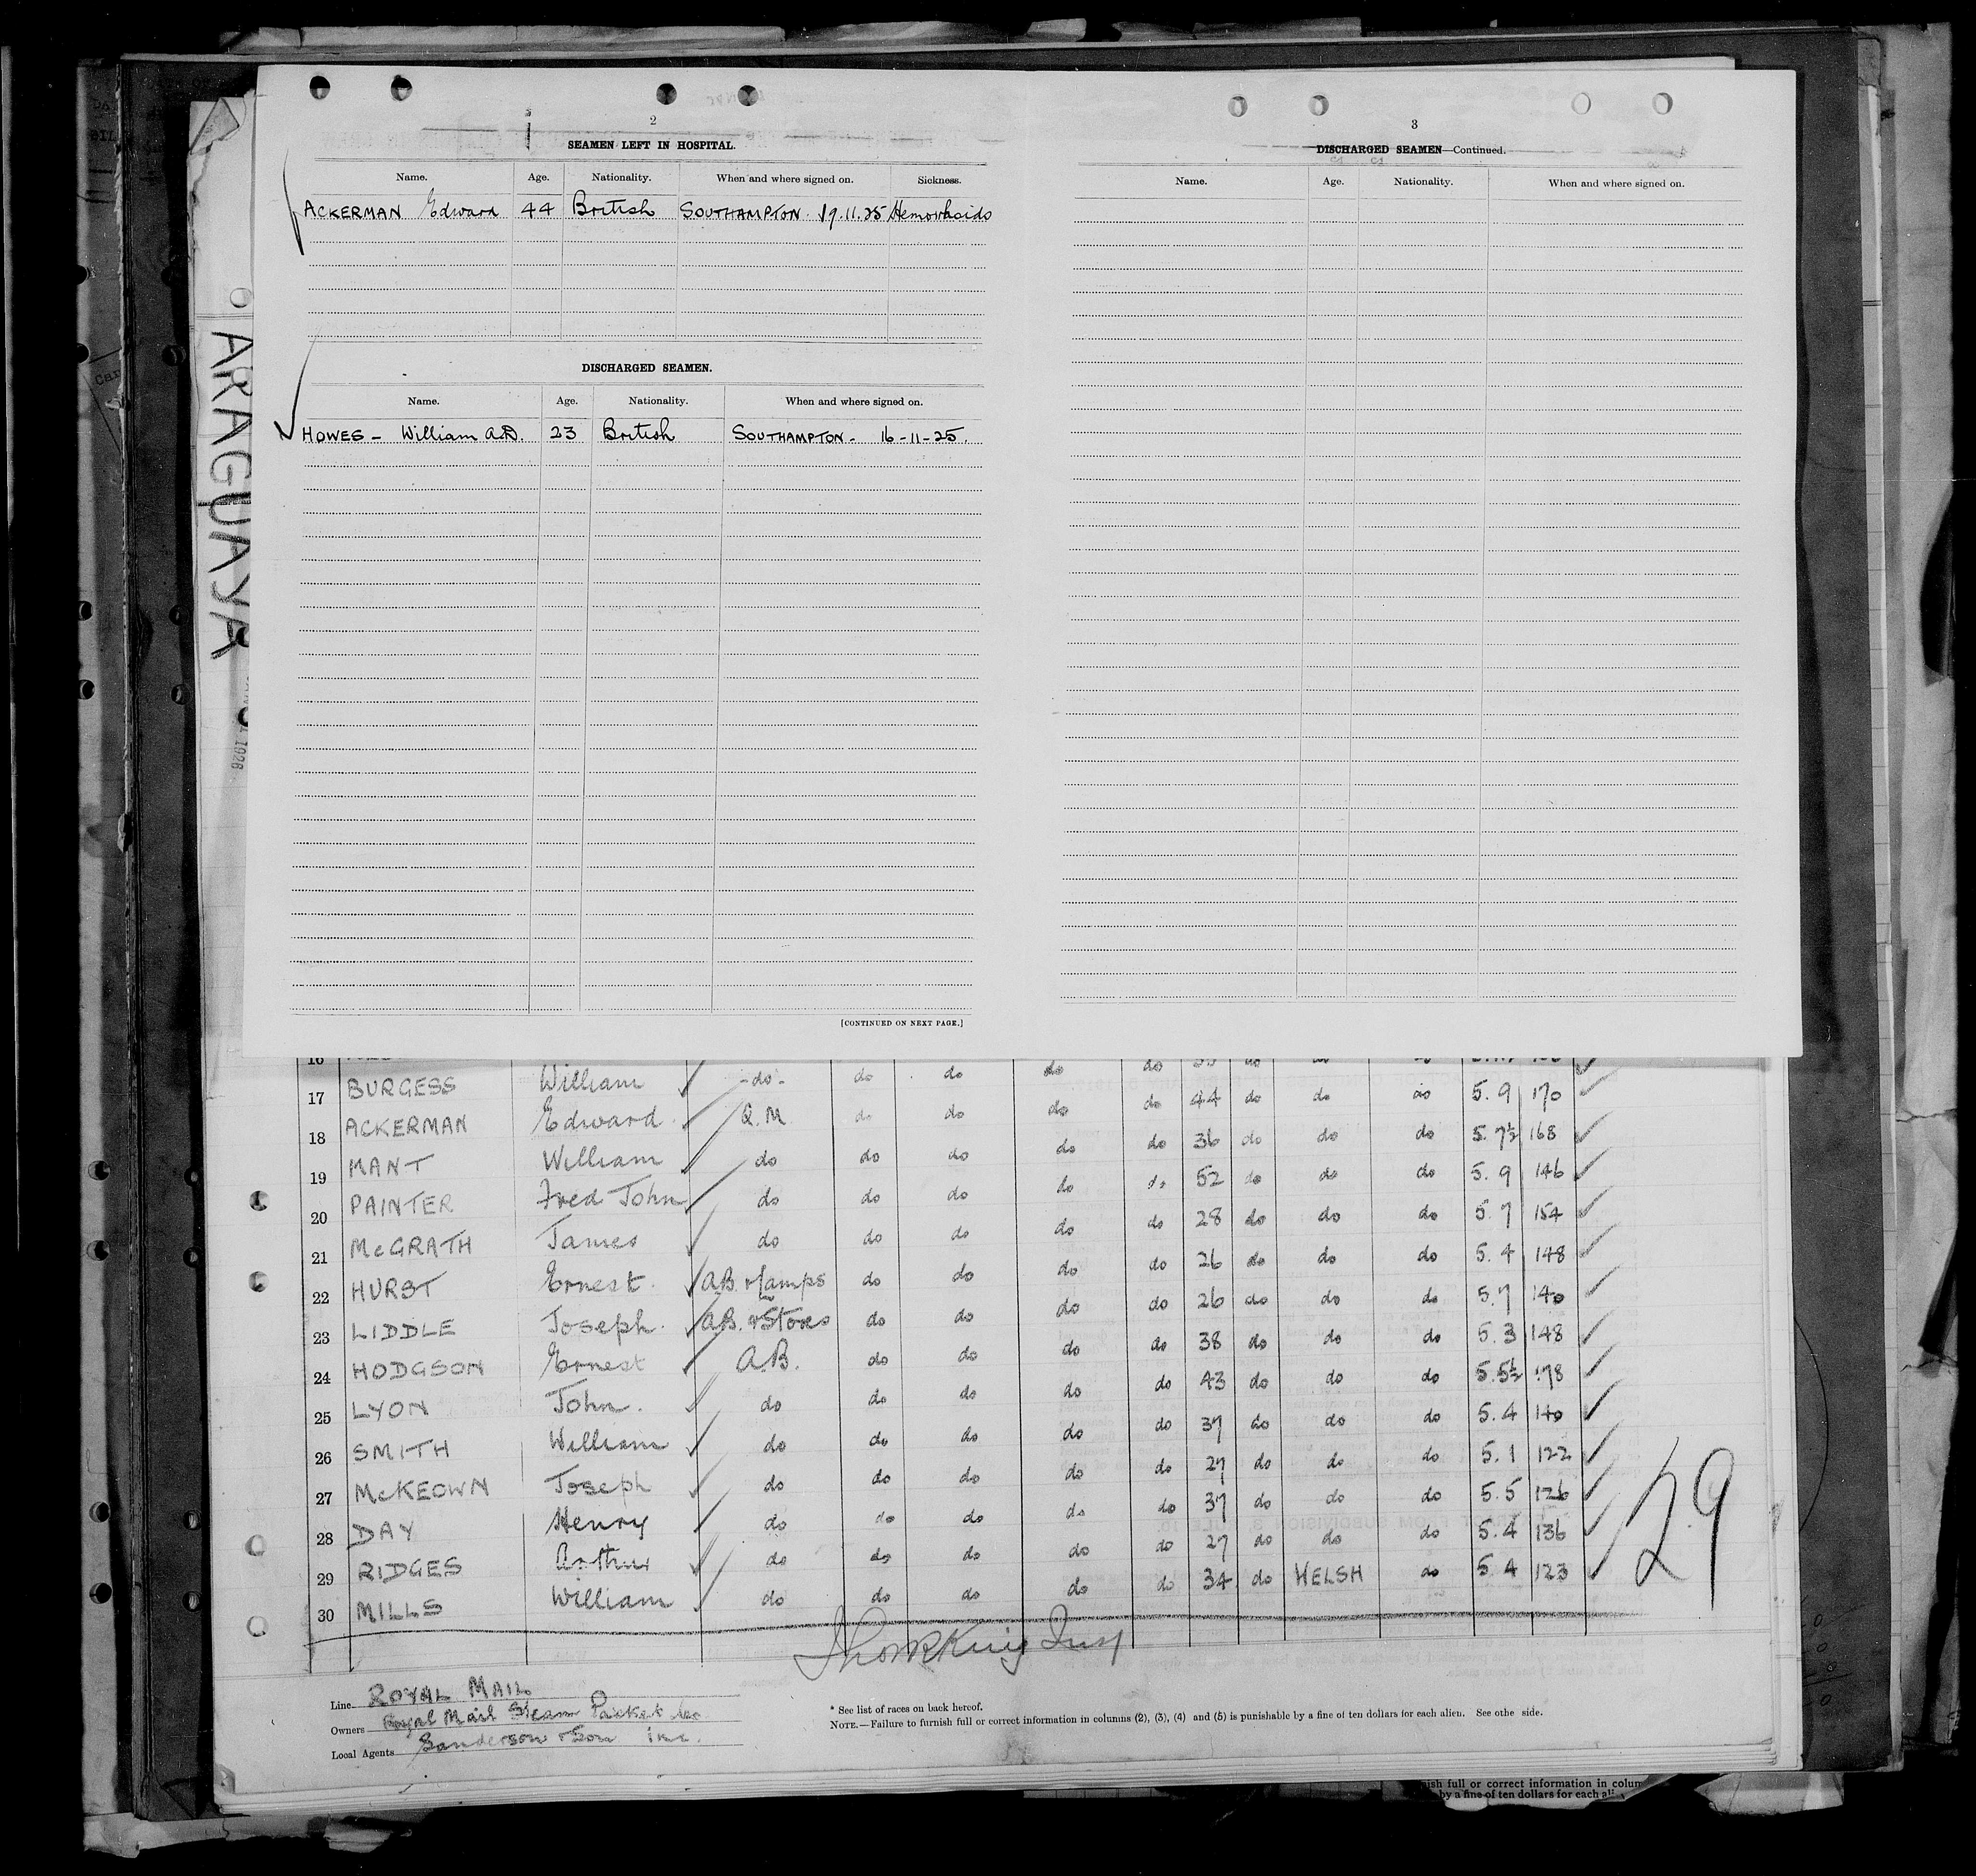 2
SEAMEN LEFT IN HOSPITAL.
Name. Age. Nationality. When and where signed on. Sickness.
ACKERMAN Edward 44 British SOUTHAMPTON. 19.11.25 Hemorrhoids
DISCHARGED SEAMEN.
Name. Age. Nationality. When and where signed on.
HOWES - William A.D. 23 British SOUTHAMPTON - 16-11-25.
[CONTINUED ON NEXT PAGE.]
3
DISCHARGED SEAMEN—Continued.
Name. Age. Nationality. When and where signed on.
ARAGUAYA
16
17 BURGESS William -do- do do do do 44 do do do 5. 9 170
18 ACKERMAN Edward. Q.M do do do do 36 do do do 5. 7½ 168
19 MANT William do do do do do 52 do do do 5. 9 146
20 PAINTER Fred John do do do do do 28 do do do 5. 7 154
21 McGRATH James do do do do do 26 do do do 5. 4 148
22 HURST Ernest. A.B. & Lamps do do do do 26 do do do 5. 7 140
23 LIDDLE Joseph. A.B. & Stores do do do do 38 do do do 5. 3 148
24 HODGSON Ernest A.B. do do do do 43 do do do 5. 5½ 178
25 LYON John. do do do do do 37 do do do 5. 4 140
26 SMITH William do do do do do 27 do do do 5. 1 122
27 McKEOWN Joseph do do do do do 37 do do do 5. 5 126
28 DAY Henry do do do do do 27 do do do 5. 4 136
29 RIDGES Arthur do do do do do 34 do WELSH do 5. 4 123
30 MILLS William do do do do
29
Line ROYAL MAIL
Owners Royal Mail Steam Packet
Local Agents Sanderson & Son Inc.
* See list of races on back hereof.
NOTE.—Failure to furnish full or correct information in columns (2), (3), (4) and (5) is punishable by a fine of ten dollars for each alien. See othe side.
ish full or correct information in colum
by a fine of ten dollars for each ali